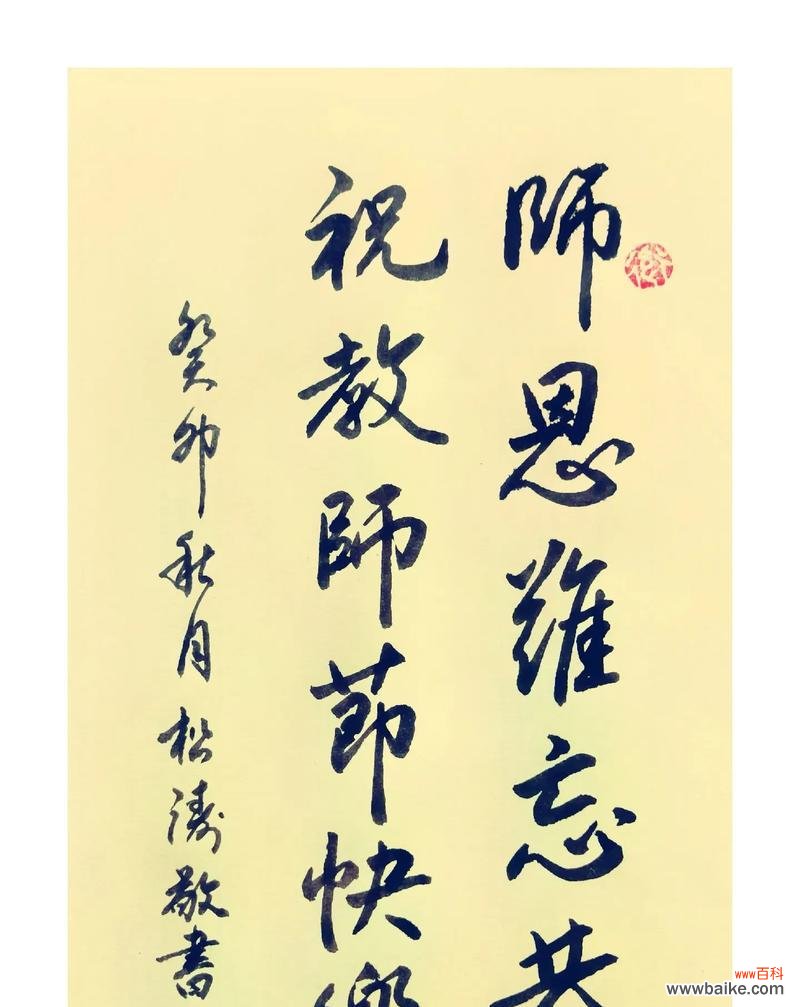 師恩難忘共
祝教師節快樂
癸卯秋月松濤敬書
www百科
www.baike.com